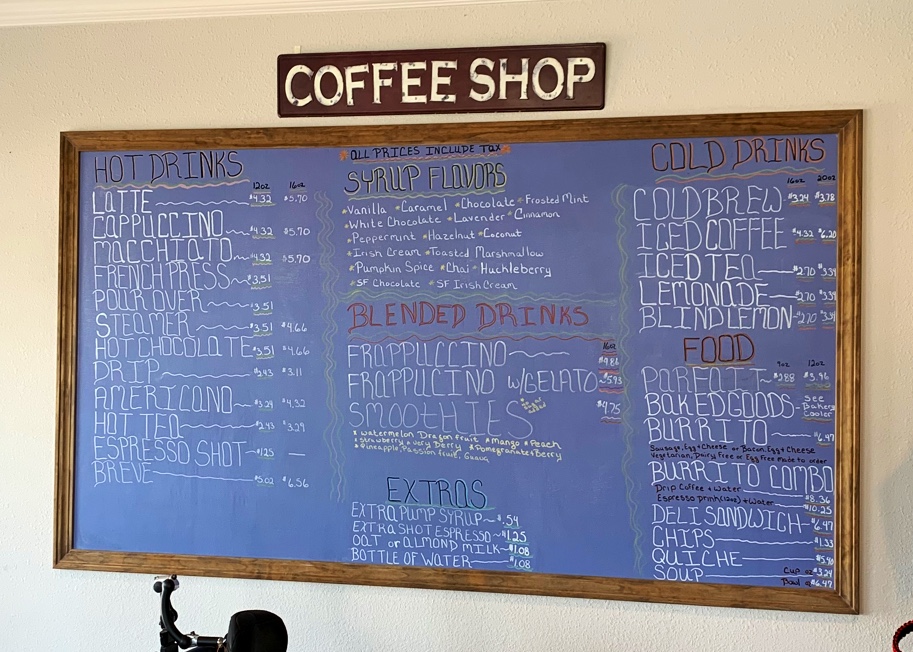 COFFEE SHOP
HOT DRINKS
12oz 16oz
LATTE $4.32 $5.70
CAPPUCCINO $4.32 $5.70
MACCHIATO $4.32 $5.70
FRENCH PRESS $3.51
POUR OVER $3.51
STEAMER $3.51 $4.66
HOT CHOCOLATE $3.51 $4.66
DRIP $2.43 $3.11
AMERICANO $3.29 $4.32
HOT TEA $2.43 $3.29
ESPRESSO SHOT $1.25 —
BREVE $5.02 $6.56
ALL PRICES INCLUDE TAX
SYRUP FLAVORS
Vanilla Caramel Chocolate Frosted Mint
White Chocolate Lavender Cinnamon
Peppermint Hazelnut Coconut
Irish Cream Toasted Marshmallow
Pumpkin Spice Chai Huckleberry
SF Chocolate SF Irish Cream
BLENDED DRINKS
16oz
FRAPPUCCINO
FRAPPUCCINO W/GELATO $5.93
SMOOTHIES $4.75
Watermelon Dragon fruit Mango Peach
Strawberry Very Berry Pomegranate Berry
Pineapple, Passion fruit, Guava
EXTRAS
EXTRA PUMP SYRUP $.54
EXTRA SHOT ESPRESSO $1.25
OAT or ALMOND MILK $1.08
BOTTLE OF WATER $1.08
COLD DRINKS
16oz 20oz
COLD BREW $3.24 $3.78
ICED COFFEE $4.32 $6.20
ICED TEA $2.70 $3.39
LEMONADE $2.70 $3.39
BLIND LEMON $2.70 $3.39
FOOD
9oz 12oz
PARFAIT $2.88 $3.96
BAKED GOODS See Bakery Cooler
BURRITO $6.47
Sausage, Egg + Cheese or Bacon, Egg + Cheese
Vegetarian, Dairy Free or Egg Free made to order
BURRITO COMBO
Drip Coffee + Water $8.36
Espresso Drink (12oz) + Water $10.25
DELI SANDWICH $6.47
CHIPS $1.33
QUICHE
SOUP Cup $3.24
Bowl $6.47